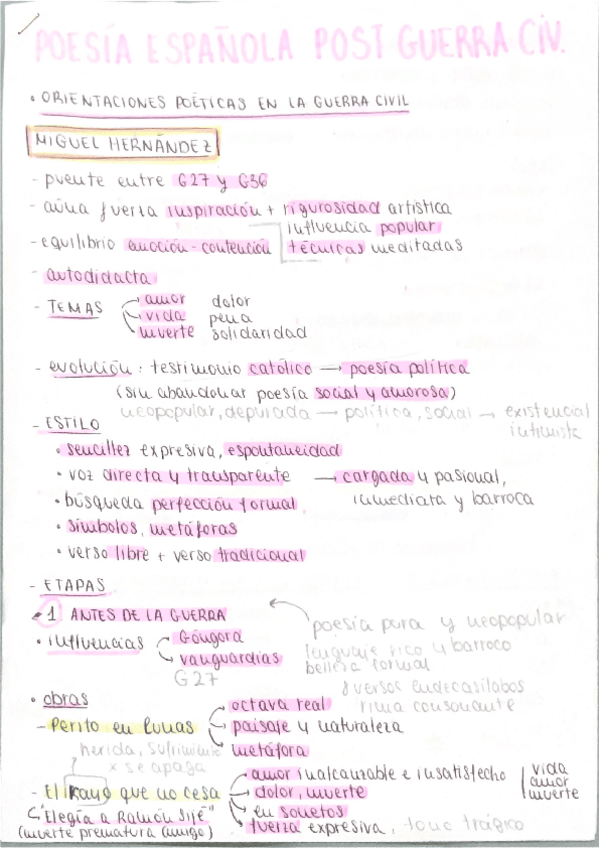 POESÍA ESPAÑOLA POST GUERRA CIV.
• ORIENTACIONES POÉTICAS EN LA GUERRA CIVIL
MIGUEL HERNÁNDEZ
- puente entre G27 y G36
- aúna fuerza inspiración + rigurosidad artística
influencia popular
- equilibrio emoción - contención técnicas meditadas
- autodidacta
- TEMAS amor dolor
vida pena
muerte solidaridad
- evolución: testimonio católico → poesía política
(sin abandonar poesía social y amorosa)
neopopular, depurada → política, social → existencial
intimista
- ESTILO
• sencillez expresiva, espontaneidad
• voz directa y transparente → cargada y pasional,
• búsqueda perfección formal inmediata y barroca
• símbolos, metáforas
• verso libre + verso tradicional
- ETAPAS
1 ANTES DE LA GUERRA
poesía pura y neopopular
• influencias Góngora
lenguaje rico y barroco
vanguardias belleza formal
G27
8 versos endecasílobos
• obras octava real rima consonante
- Perito en lunas paisaje y naturaleza
metáfora
herida, sufrimiento
x se apaga
- El rayo que no cesa amor inalcanzable e insatisfecho vida
dolor, muerte amor
en sonetos muerte
"Elegía a Ramón Sijé" fuerza expresiva, tono trágico
(muerte prematura (amigo)